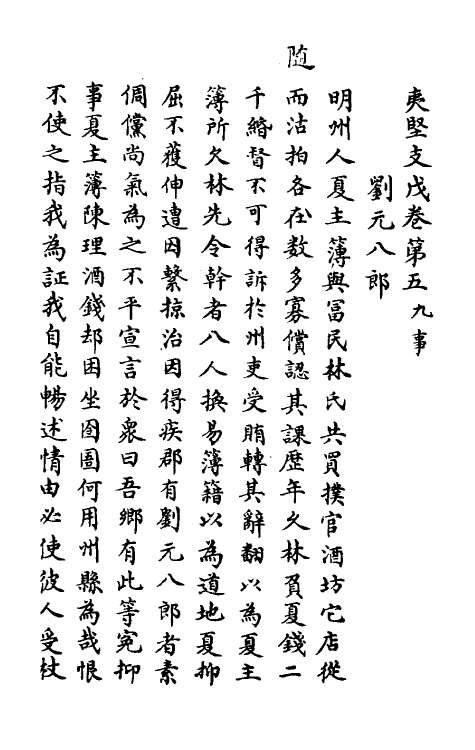 夷堅支戊卷第五 九事
劉元八郎
明州人夏主簿與冨民林氏共買撲官酒坊它店從
而沽拍各在数多寡償認其課歴年久林負夏錢二
千緡督不可得訴於州吏受賄轉其辭翻以為夏主
簿所欠林先令幹者八人換易簿籍以為道地夏抑
屈不獲伸遭囚繫掠治因得疾郡有劉元八郎者素
倜儻尚氣為之不平宣言於衆曰吾鄉有此等寃抑
事夏主簿陳理酒錢却困坐囹圄何用州縣為哉恨
不使之指我為証我自能暢述情由必使彼人受杖
随